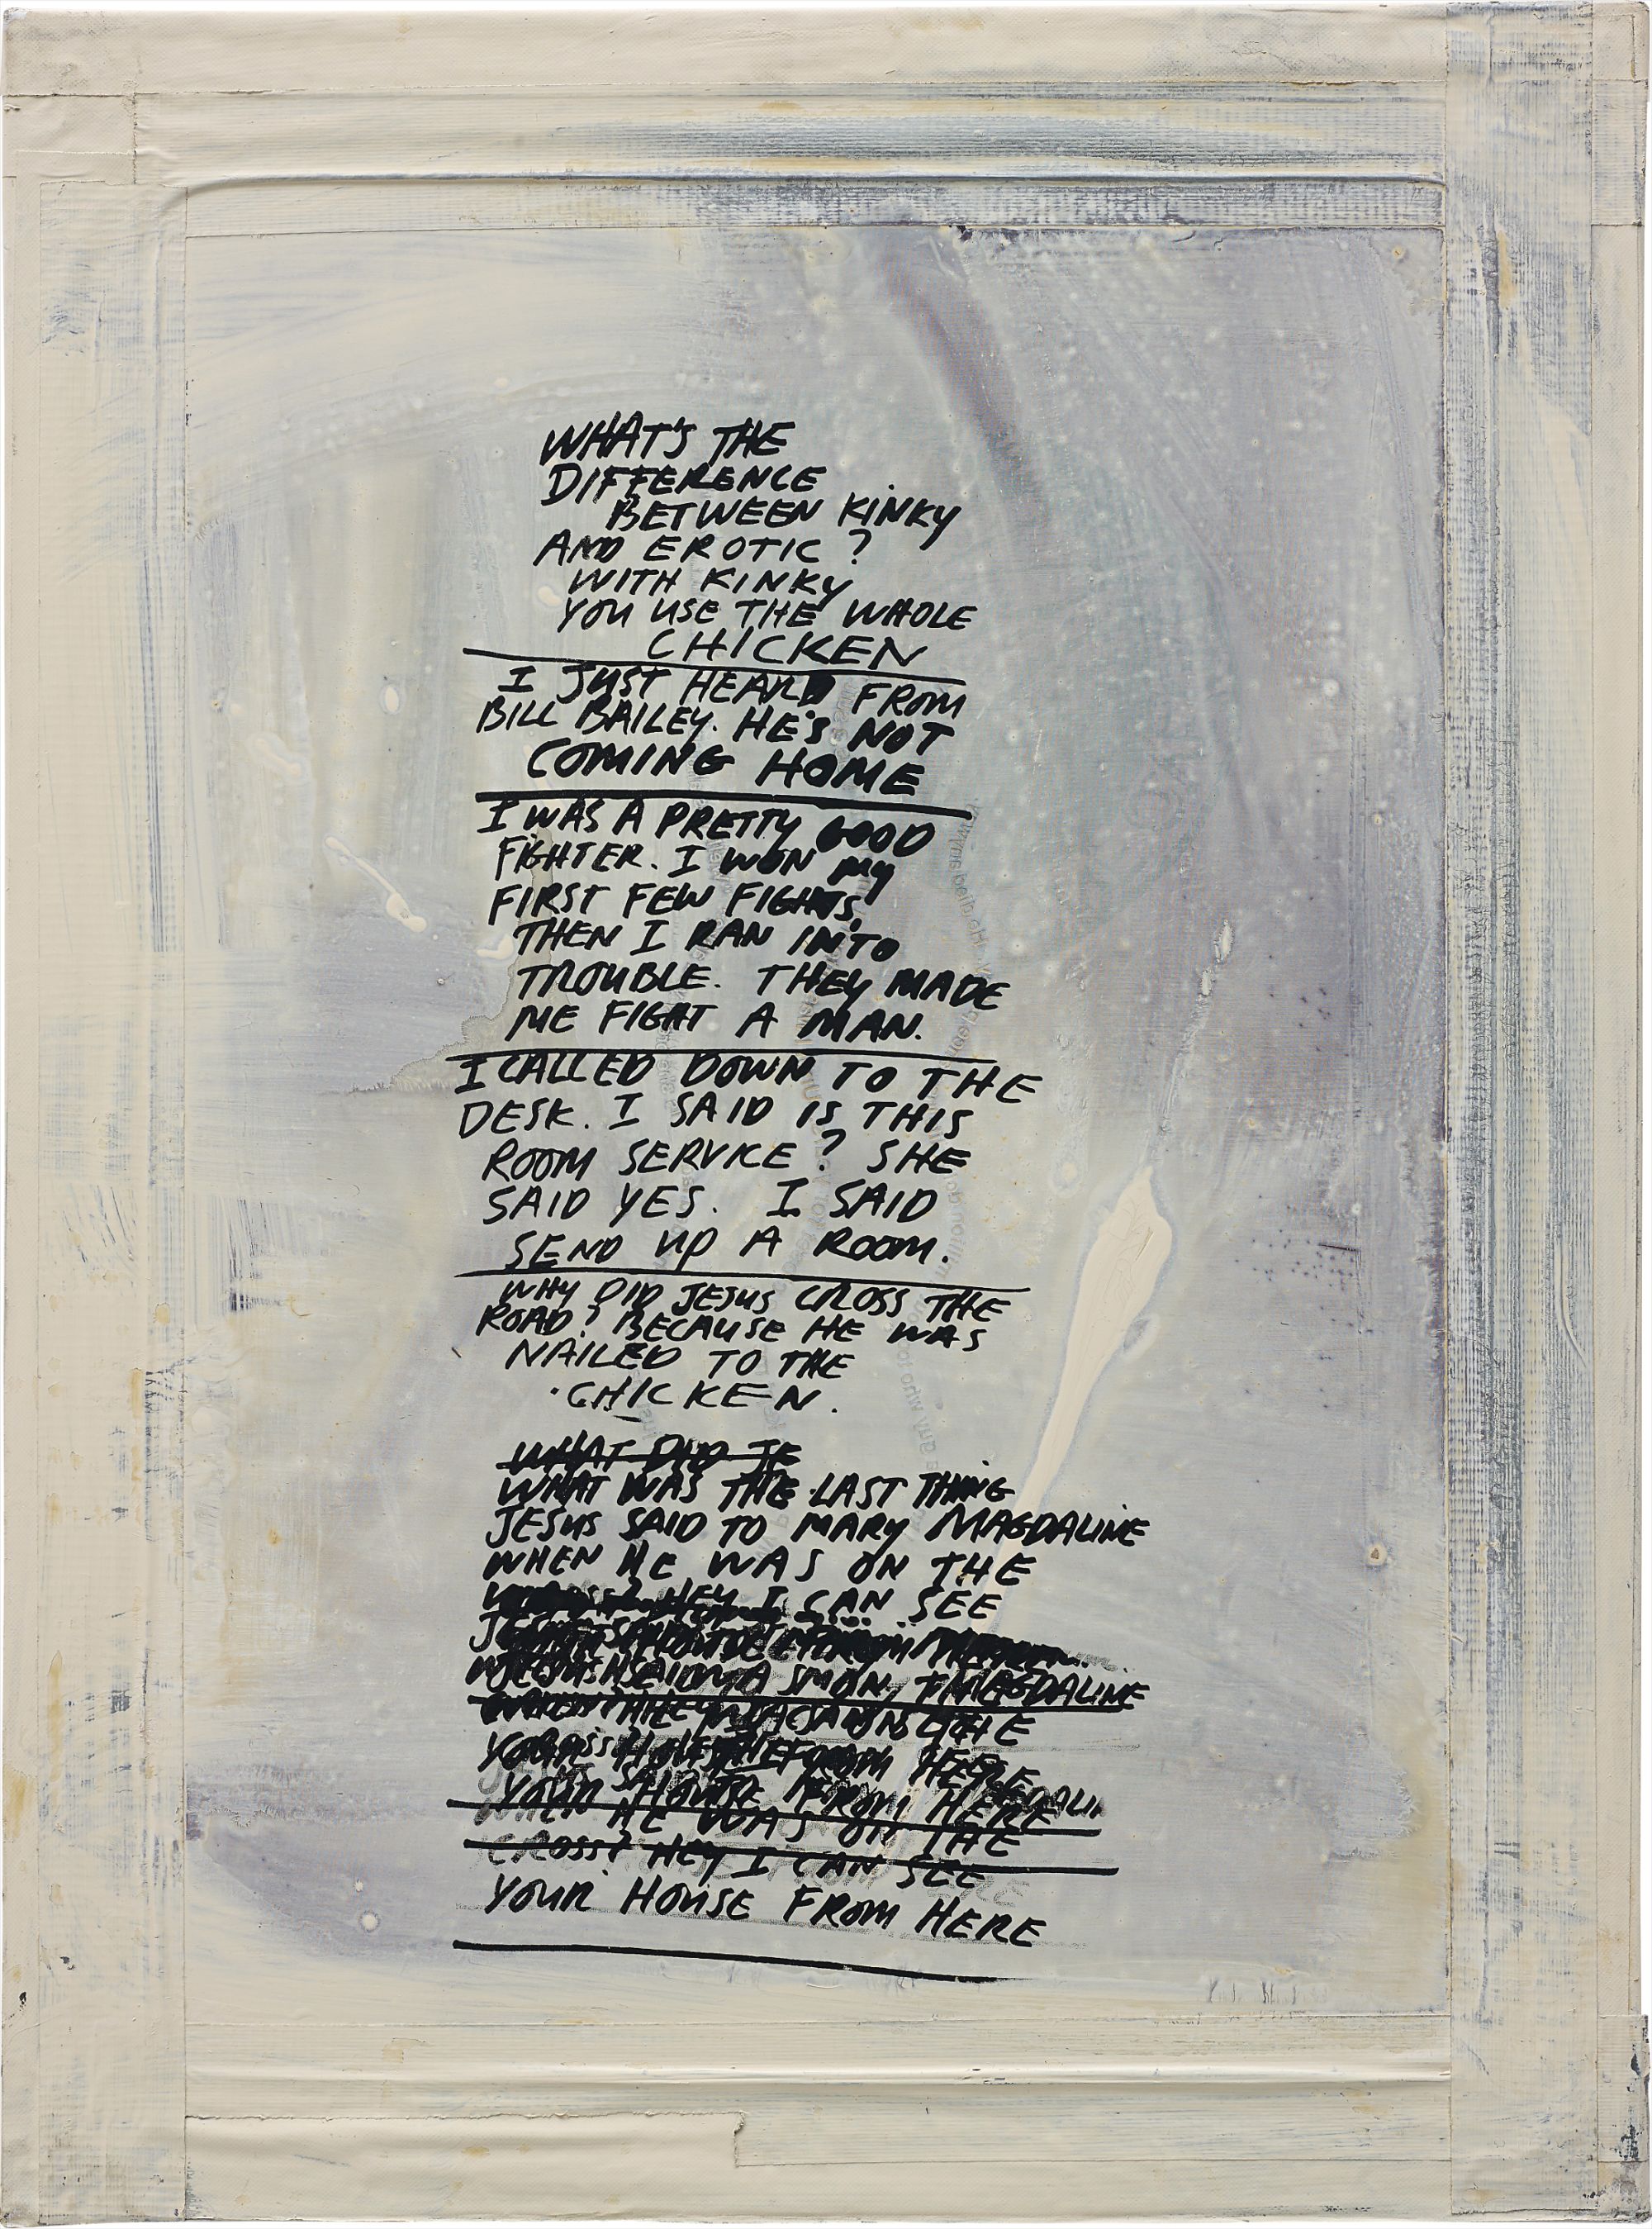 WHAT'S THE
DIFFERENCE
BETWEEN KINKY
AND EROTIC?
WITH KINKY
YOU USE THE WHOLE
CHICKEN
I JUST HEARD FROM
BILL BAILEY. HE'S NOT
COMING HOME
I WAS A PRETTY GOOD
FIGHTER. I WON MY
FIRST FEW FIGHTS,
THEN I RAN INTO
TROUBLE. THEY MADE
ME FIGHT A MAN.
I CALLED DOWN TO THE
DESK. I SAID IS THIS
ROOM SERVICE? SHE
SAID YES. I SAID
SEND UP A ROOM.
WHY DID JESUS CROSS THE
ROAD? BECAUSE HE WAS
NAILED TO THE
CHICKEN.
WHAT DID JE
WHAT WAS THE LAST THING
JESUS SAID TO MARY MAGDALINE
WHEN HE WAS ON THE
HEY I CAN SEE
MAGDALINE
HERE
YOUR HOUSE FROM HERE
WHEN HE WAS ON THE
CROSS? HEY I CAN SEE
YOUR HOUSE FROM HERE